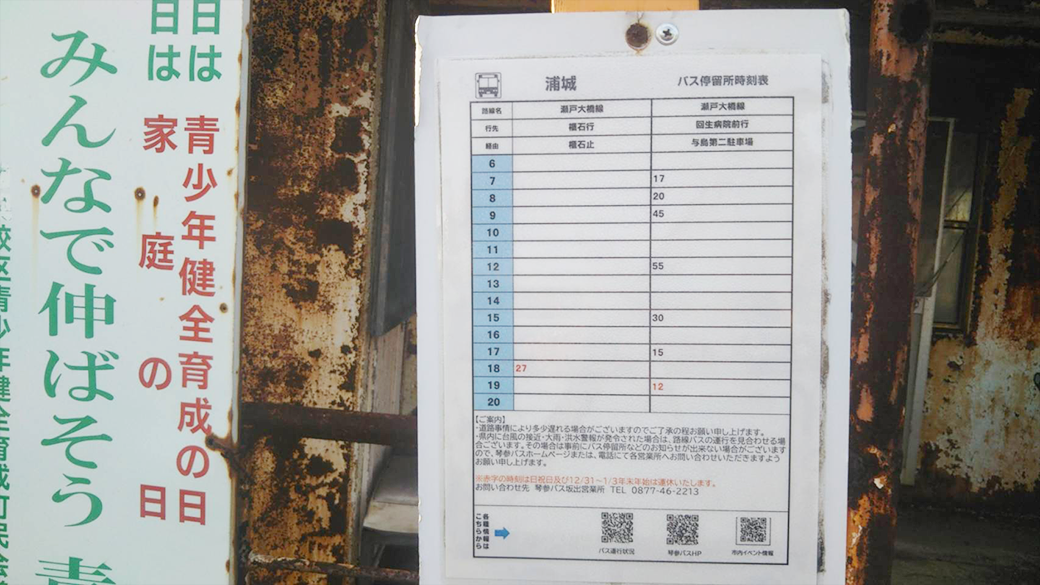 日は 青少年健全育成の日
日は 家庭の日
みんなで伸ばそう 青
校区青少年健全育成町民会
浦城 バス停留所時刻表
路線名 瀬戸大橋線 瀬戸大橋線
行先 櫃石行 回生病院前行
経由 櫃石止 与島第二駐車場
6
7 17
8 20
9 45
10
11
12 55
13
14
15 30
16
17 15
18 27
19 12
20
【ご案内】
・道路事情により多少遅れる場合がございますのでご了承の程お願い申し上げます。
・県内に台風の接近・大雨・洪水警報が発令された場合は、路線バスの運行を見合わせる場
合ございます。その場合は事前にバス停留所などのお知らせが出来ない場合がございます
ので、琴参バスホームページまたは、電話にて各営業所へお問い合わせいただきますよう
お願い申し上げます。
※赤字の時刻は日祝日及び12/31~1/3年末年始は運休いたします。
お問い合わせ先 琴参バス坂出営業所 TEL 0877-46-2213
各種情報は
こちらから
バス運行状況 琴参バスHP 市内イベント情報